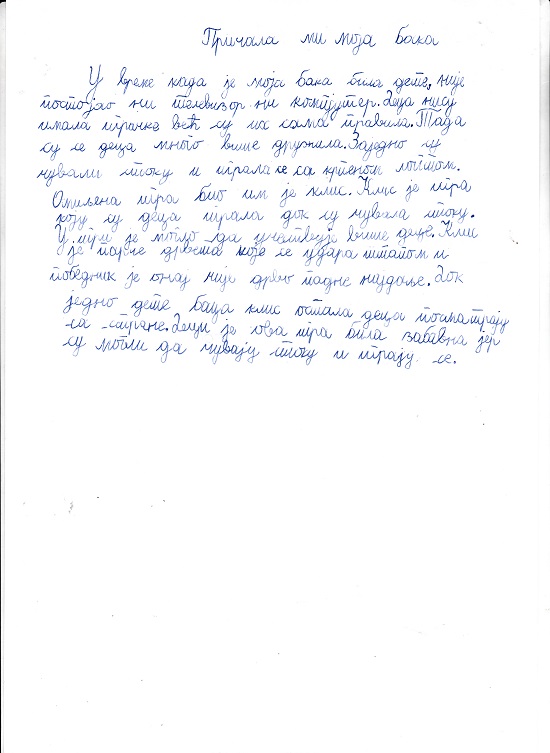 Причала ми моја бака
У време када је моја бака била дете, није
постојао ни телевизор ни компјутер. Деца нису
имала играчке већ су их сама правила. Тада
су се деца много више дружила. Заједно су
чували стоку и играла се са крпеном лоптом.
Омиљена игра био им је клис. Клис је игра
коју су деца играла док су чувала стоку.
У игри је могло да учествује више деце. Клис
је парче дрвета које се удара штапом и
победник је онај чије дрво падне најдаље. Док
једно дете баца клис остала деца посматрају
са стране. Деци је ова игра била забавна јер
су могли да чувају стоку и играју се.